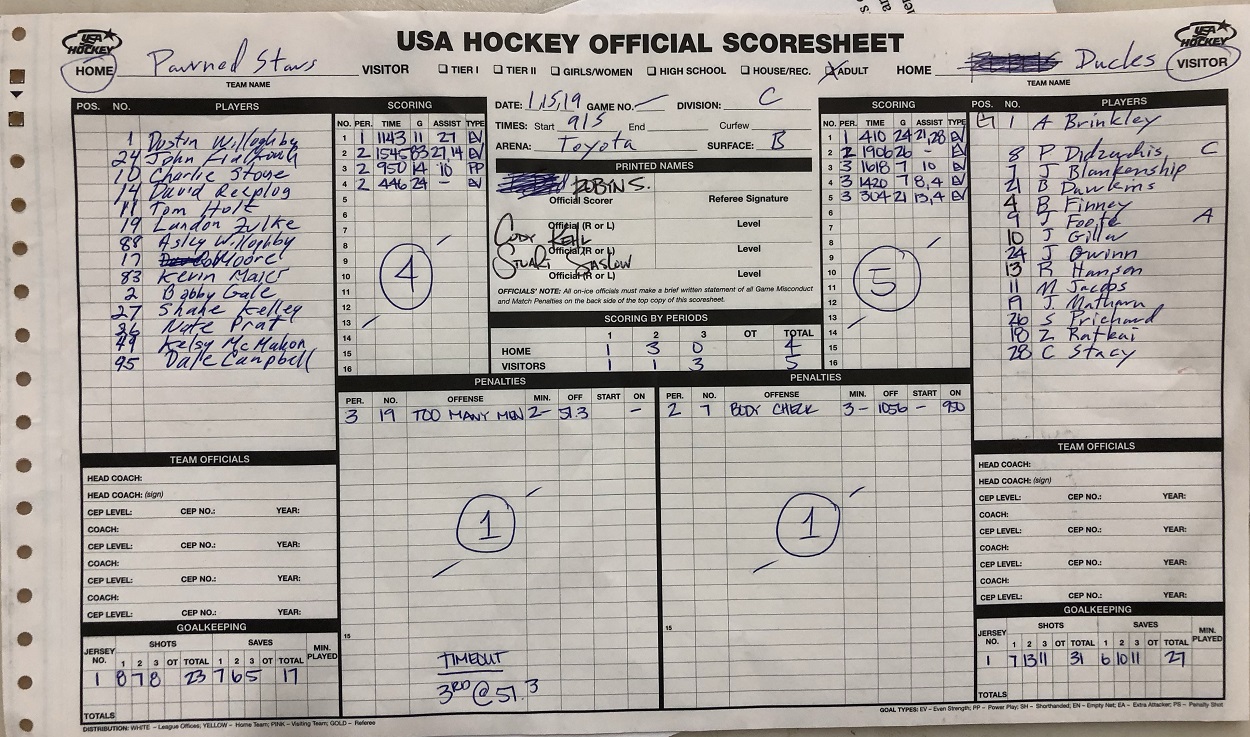 USA HOCKEY OFFICIAL SCORESHEET
USA HOCKEY
HOME Pawned Stars VISITOR
TEAM NAME
TIER I TIER II GIRLS/WOMEN HIGH SCHOOL HOUSE/REC. ADULT
HOME Ducks VISITOR
TEAM NAME
USA HOCKEY
POS. NO. PLAYERS
1 Dustin Willoghby
24 John
10 Charlie Stone
14 David Replog
11 Tom Holt
19 Landon Zulke
88 Asley Willoghby
17 Moore
83 Kevin Maier
2 Bobby Gale
27 Shane Kelley
36 Nate Prat
49 Kelsy McMahon
95 Dale Campbell
SCORING
NO. PER. TIME G ASSIST TYPE
1 1 1143 11 27 EV
2 2 1545 83 27,14 EV
3 2 950 14 10 PP
4 2 446 24 - EV
5
6
7
8
9
10
11
12
13
14
15
16
4
DATE: 1,15,19 GAME NO. — DIVISION: C
TIMES: Start 915 End Curfew
ARENA: Toyota SURFACE: B
PRINTED NAMES
ROBIN S.
Official Scorer Referee Signature
Cody Kehl
Official (R or L) Level
Stuart Saslow
Official (R or L) Level
Official (R or L) Level
OFFICIALS' NOTE: All on-ice officials must make a brief written statement of all Game Misconduct
and Match Penalties on the back side of the top copy of this scoresheet.
SCORING BY PERIODS
1 2 3 OT TOTAL
HOME 1 3 0 4
VISITORS 1 1 3 5
SCORING
NO. PER. TIME G ASSIST TYPE
1 1 410 24 21,28 EV
2 2 1906 26 - EV
3 3 1618 7 10 EV
4 3 1420 7 8,4 EV
5 3 304 21 13,4 EV
6
7
8
9
10
11
12
13
14
15
16
5
POS. NO. PLAYERS
1 A Brinkley
8 P Didzuchis C
7 J Blankenship
21 B Dawkins
4 B Finney
9 J Foote A
10 J Giller
24 J Gwinn
13 R Hanson
11 M Jacobs
J Mathern
26 S Prichard
18 Z Ratkai
28 C Stacy
PENALTIES
PER. NO. OFFENSE MIN. OFF START ON
3 19 TOO MANY MEN 2- 51.3 -
1
15
TIMEOUT
3RD @ 51.3
PENALTIES
PER. NO. OFFENSE MIN. OFF START ON
2 7 BODY CHECK 3- 1056 - 950
1
15
TEAM OFFICIALS
HEAD COACH:
HEAD COACH: (sign)
CEP LEVEL: CEP NO.: YEAR:
COACH:
CEP LEVEL: CEP NO.: YEAR:
COACH:
CEP LEVEL: CEP NO.: YEAR:
COACH:
CEP LEVEL: CEP NO.: YEAR:
GOALKEEPING
JERSEY NO. SHOTS SAVES MIN. PLAYED
1 2 3 OT TOTAL 1 2 3 OT TOTAL
1 8 7 8 23 7 6 5 17
TOTALS
TEAM OFFICIALS
HEAD COACH:
HEAD COACH: (sign)
CEP LEVEL: CEP NO.: YEAR:
COACH:
CEP LEVEL: CEP NO.: YEAR:
COACH:
CEP LEVEL: CEP NO.: YEAR:
COACH:
CEP LEVEL: CEP NO.: YEAR:
GOALKEEPING
JERSEY NO. SHOTS SAVES MIN. PLAYED
1 2 3 OT TOTAL 1 2 3 OT TOTAL
1 7 13 11 31 6 10 11 27
TOTALS
DISTRIBUTION: WHITE – League Offices; YELLOW – Home Team; PINK – Visiting Team; GOLD – Referee
GOAL TYPES: EV – Even Strength; PP – Power Play; SH – Shorthanded; EN – Empty Net; EA – Extra Attacker; PS – Penalty Shot